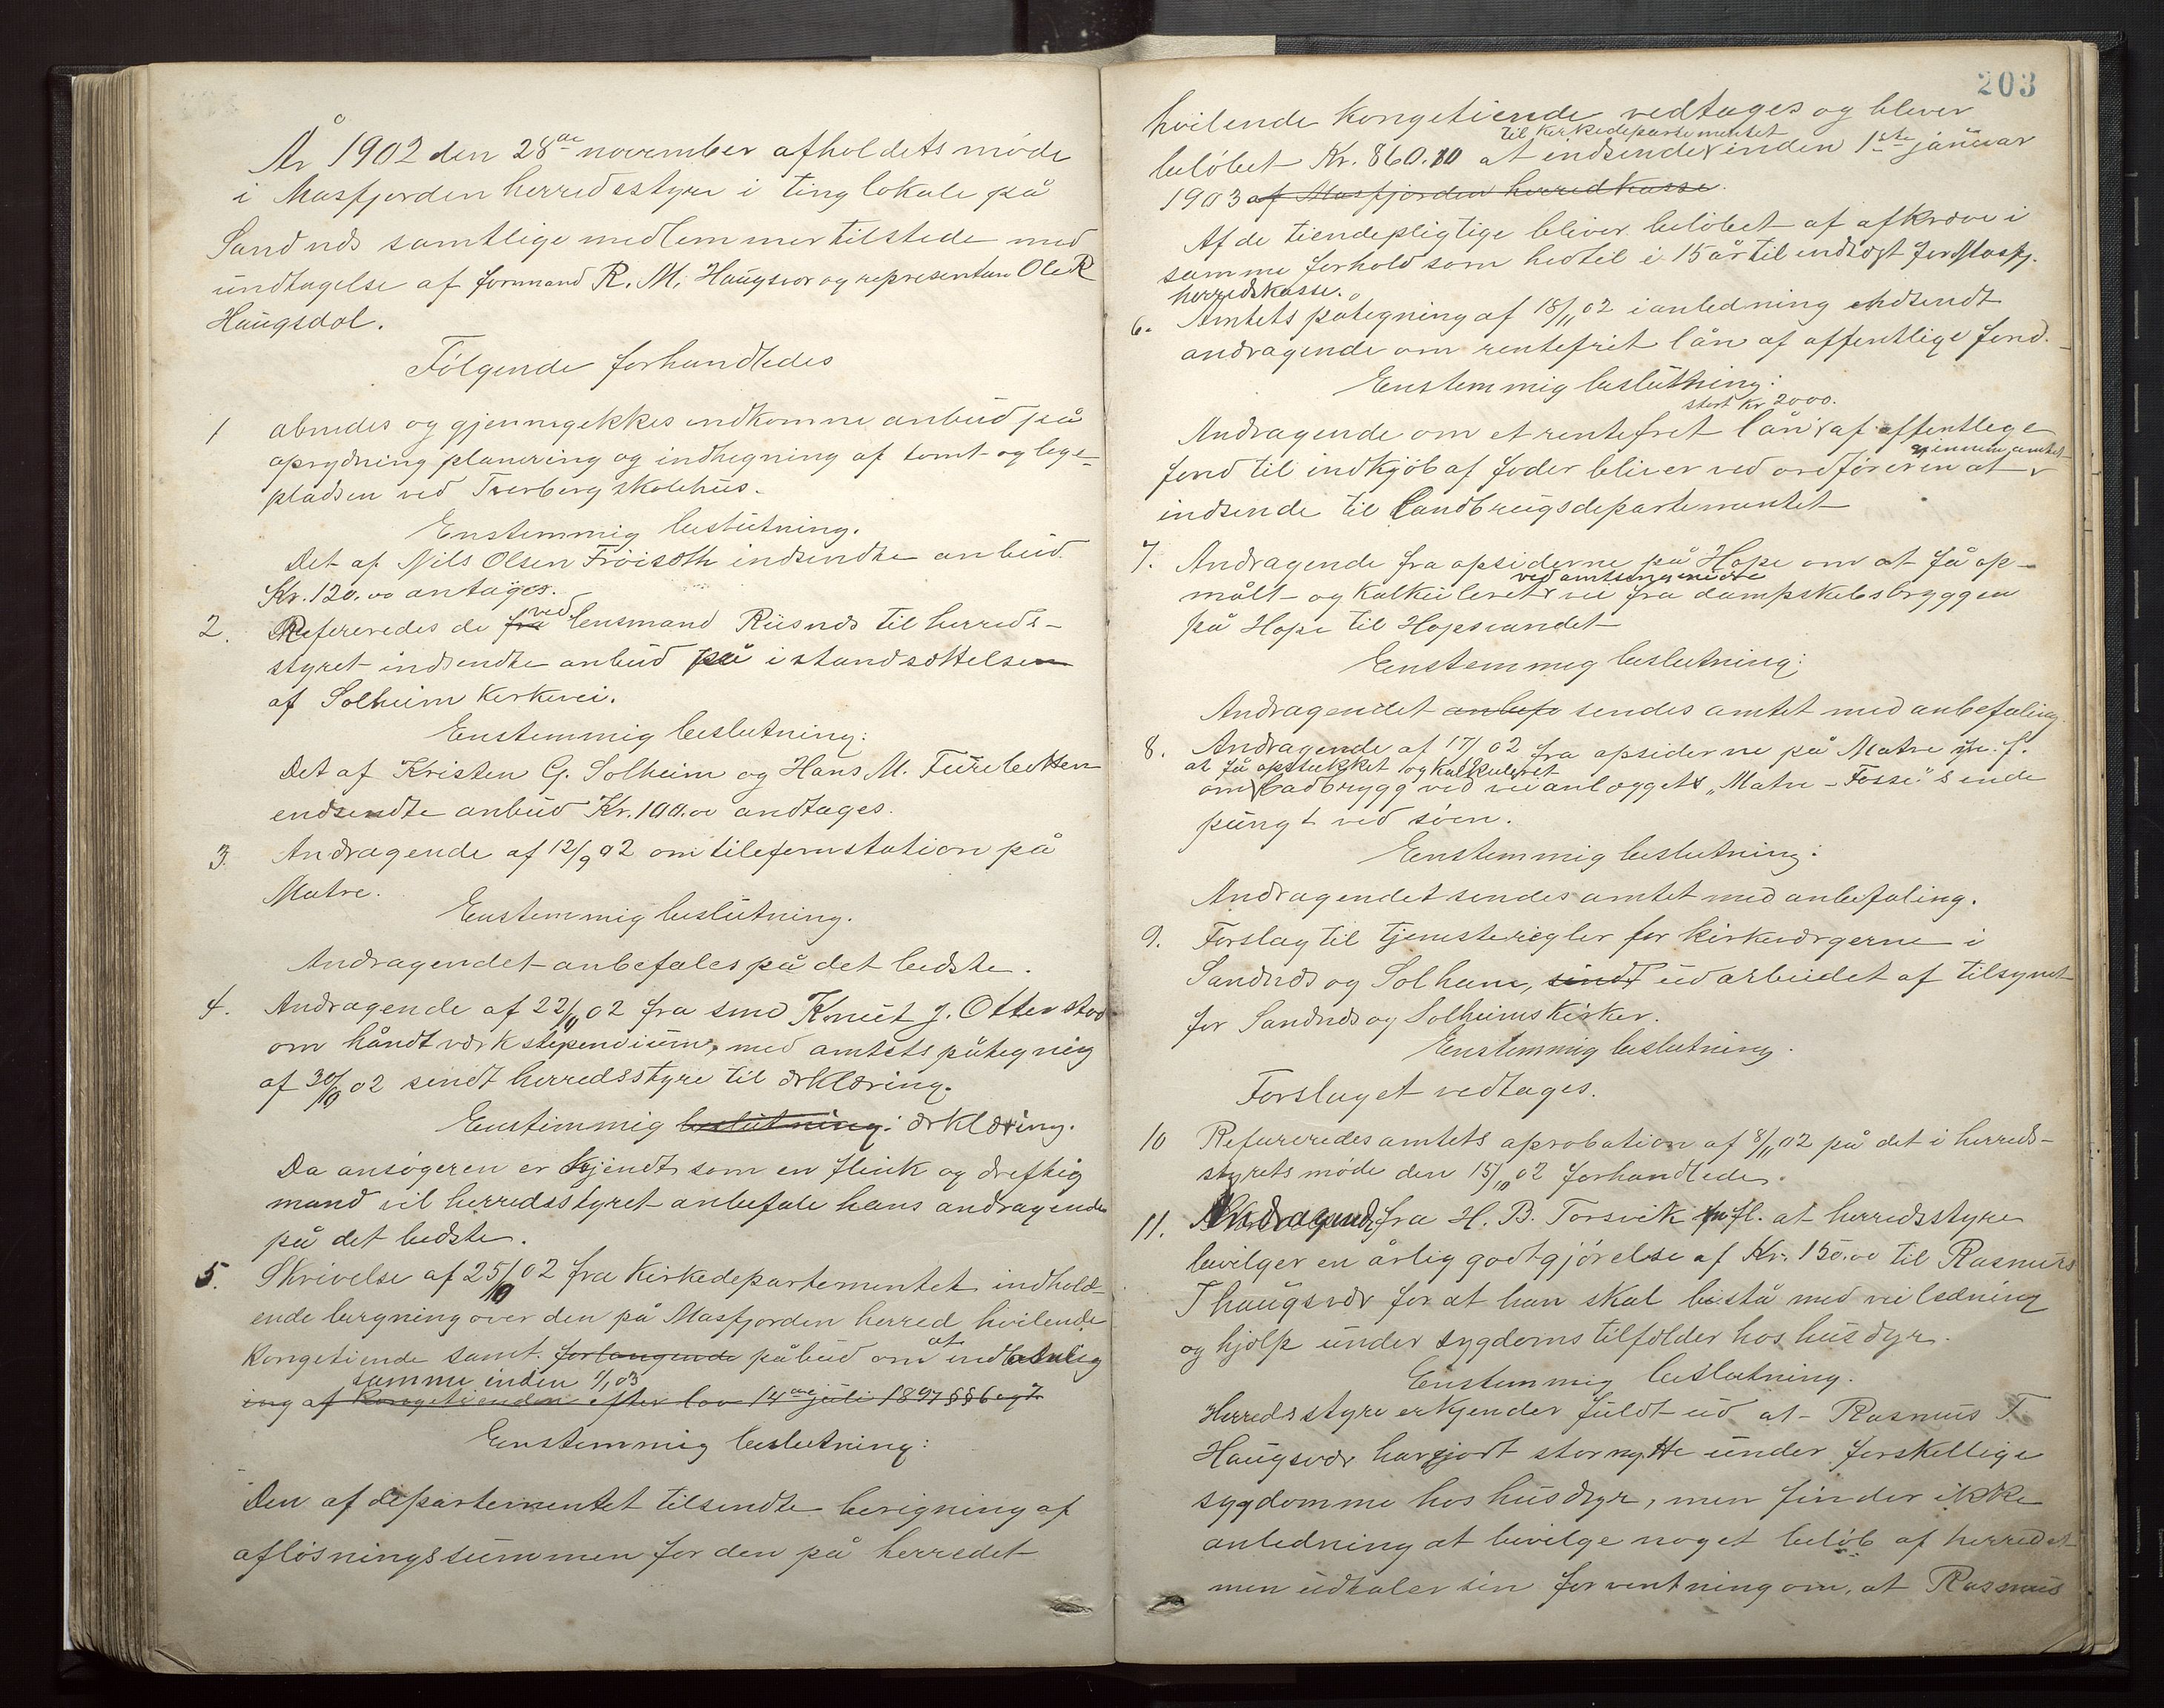 År 1902 den 28de november afholdets møde
i Masfjorden herredsstyre i tinglokale på
Sandnæs samtlige medlemmer tilstede med
undtagelse af formand R. M. Haugsvær og representan Ole R
Haugsdal.
Følgende forhandledes
1 abnedes og gjennegekkes indkomne anbud på
oprydning planering og indhegning af tomt og lege-
pladsen ved Tverberg skolehus.
Enstemmig beslutning.
Det af Nils Olsen Frøiseth indsendte anbud
Kr. 120.00 antages.
2. Refereredes de fra ved lensmand Risnæs til herreds-
styret indsendte anbud på istandsættelsen
af Solheim Kerkevei.
Enstemmig beslutning:
Det af Kristen G. Solheim og Hans M. Furebotten
endsendte anbud Kr. 100.00 andtages.
3. Andragende af 12/9 02 om tilefonstation på
Matre.
Enstemmig beslutning.
Andragendet anbefales på det bedste.
4. Andragende af 22/10 02 fra smed Knut J. Otterstad
om håndtværkstipendium, med amtets påtegnig
af 30/10 02 sendt herredsstyre til ærklæring.
Enstimmig beslutning: ærklæring.
Da ansøgeren er kjendt som en flink og dreftig
mand vil herredsstyret anbefale hans andragende
på det bedste.
5. Skrivelse af 25/10 02 fra Kirkedepartementet indhold-
ende bergning over den på Masfjorden herred hvilende
Kongetiende samt forlangende påbud om at indbetalig
samme inden 1/1 03
ing af Kongetienden efter lov 14de juli 1897 §§ 6 og 7
Enstemmig beslutning:
Den af departementet tilsendte berigning af
afløsningssummen for den på herredet
203
hvilende Kongetiende vedtages og bliver
til Kirkedepartementet
beløbet Kr. 860.10 at indsende inden 1ste januar
1903 af Masfjorden herredkasse.
Af de tiendepligtige bliver beløbet af afkræve i
samme forhold som hedtil i 15 år til indtægt for Masfj.
herredskasse.
6. Amtets påtegning af 18/11 02 ianledning endsendt
andragende om rentefrit lån af offentlige fond.
Enstemmig beslutning:
stort Kr 2000.
Andragende om et rentefret lån af offentlege
gjennem amtet
fond til indkjøb af foder bliver ved ordføreren at
indsende til Landbrugsdepartementet
7. Andragende fra opsiderne på Hope om at få op-
ved amtsingeniøre
målt og Kalkuleret vei fra dampskibsbryggen
på Hope til Hopsvandet
Enstemmig beslutning:
Andragendet anbefa sendes amtet med anbefaling
8. Andragende af 17/ 02 fra opsiderne på Matre m. f.
at få opstukket og kalkuleret
om badbrygg ved veianlæggets "Matre - Fosse" s ende
pungt ved søen.
Enstemmig beslutning:
Andragendet sendes amtet med anbefaling.
9. Forslag til tjenesteriegler for kirkeværgerne i
Sandnæs og Solheim, sindt udarbeidet af tilsynet
for Sandnæs og Solheims Kirker.
Enstemmig beslutning.
Forslaget vedtages.
10 Refereredes amtets aprobation af 8/11 02 på det i herreds-
styrets møde den 15/10 02 forhandlede.
11. Andragende fra H. B. Torsvik m fl. at herredsstyre
bevilger en årlig godtgjørelse af Kr. 150.00 til Rasmus
T haugsvær for at han skal bistå med veiledning
og hjælp under sygdomstilfælder hos husdyr.
Enstemmig beslutning.
Herredsstyre erkjender fuldt ud at Rasmus T
Haugsvær har gjort stor nytte under forskellige
sygdomme hos husdyr, men finder ikke
anledning at bevilge noget beløb af herredet
men udtaler sin forventning om, at Rasmus